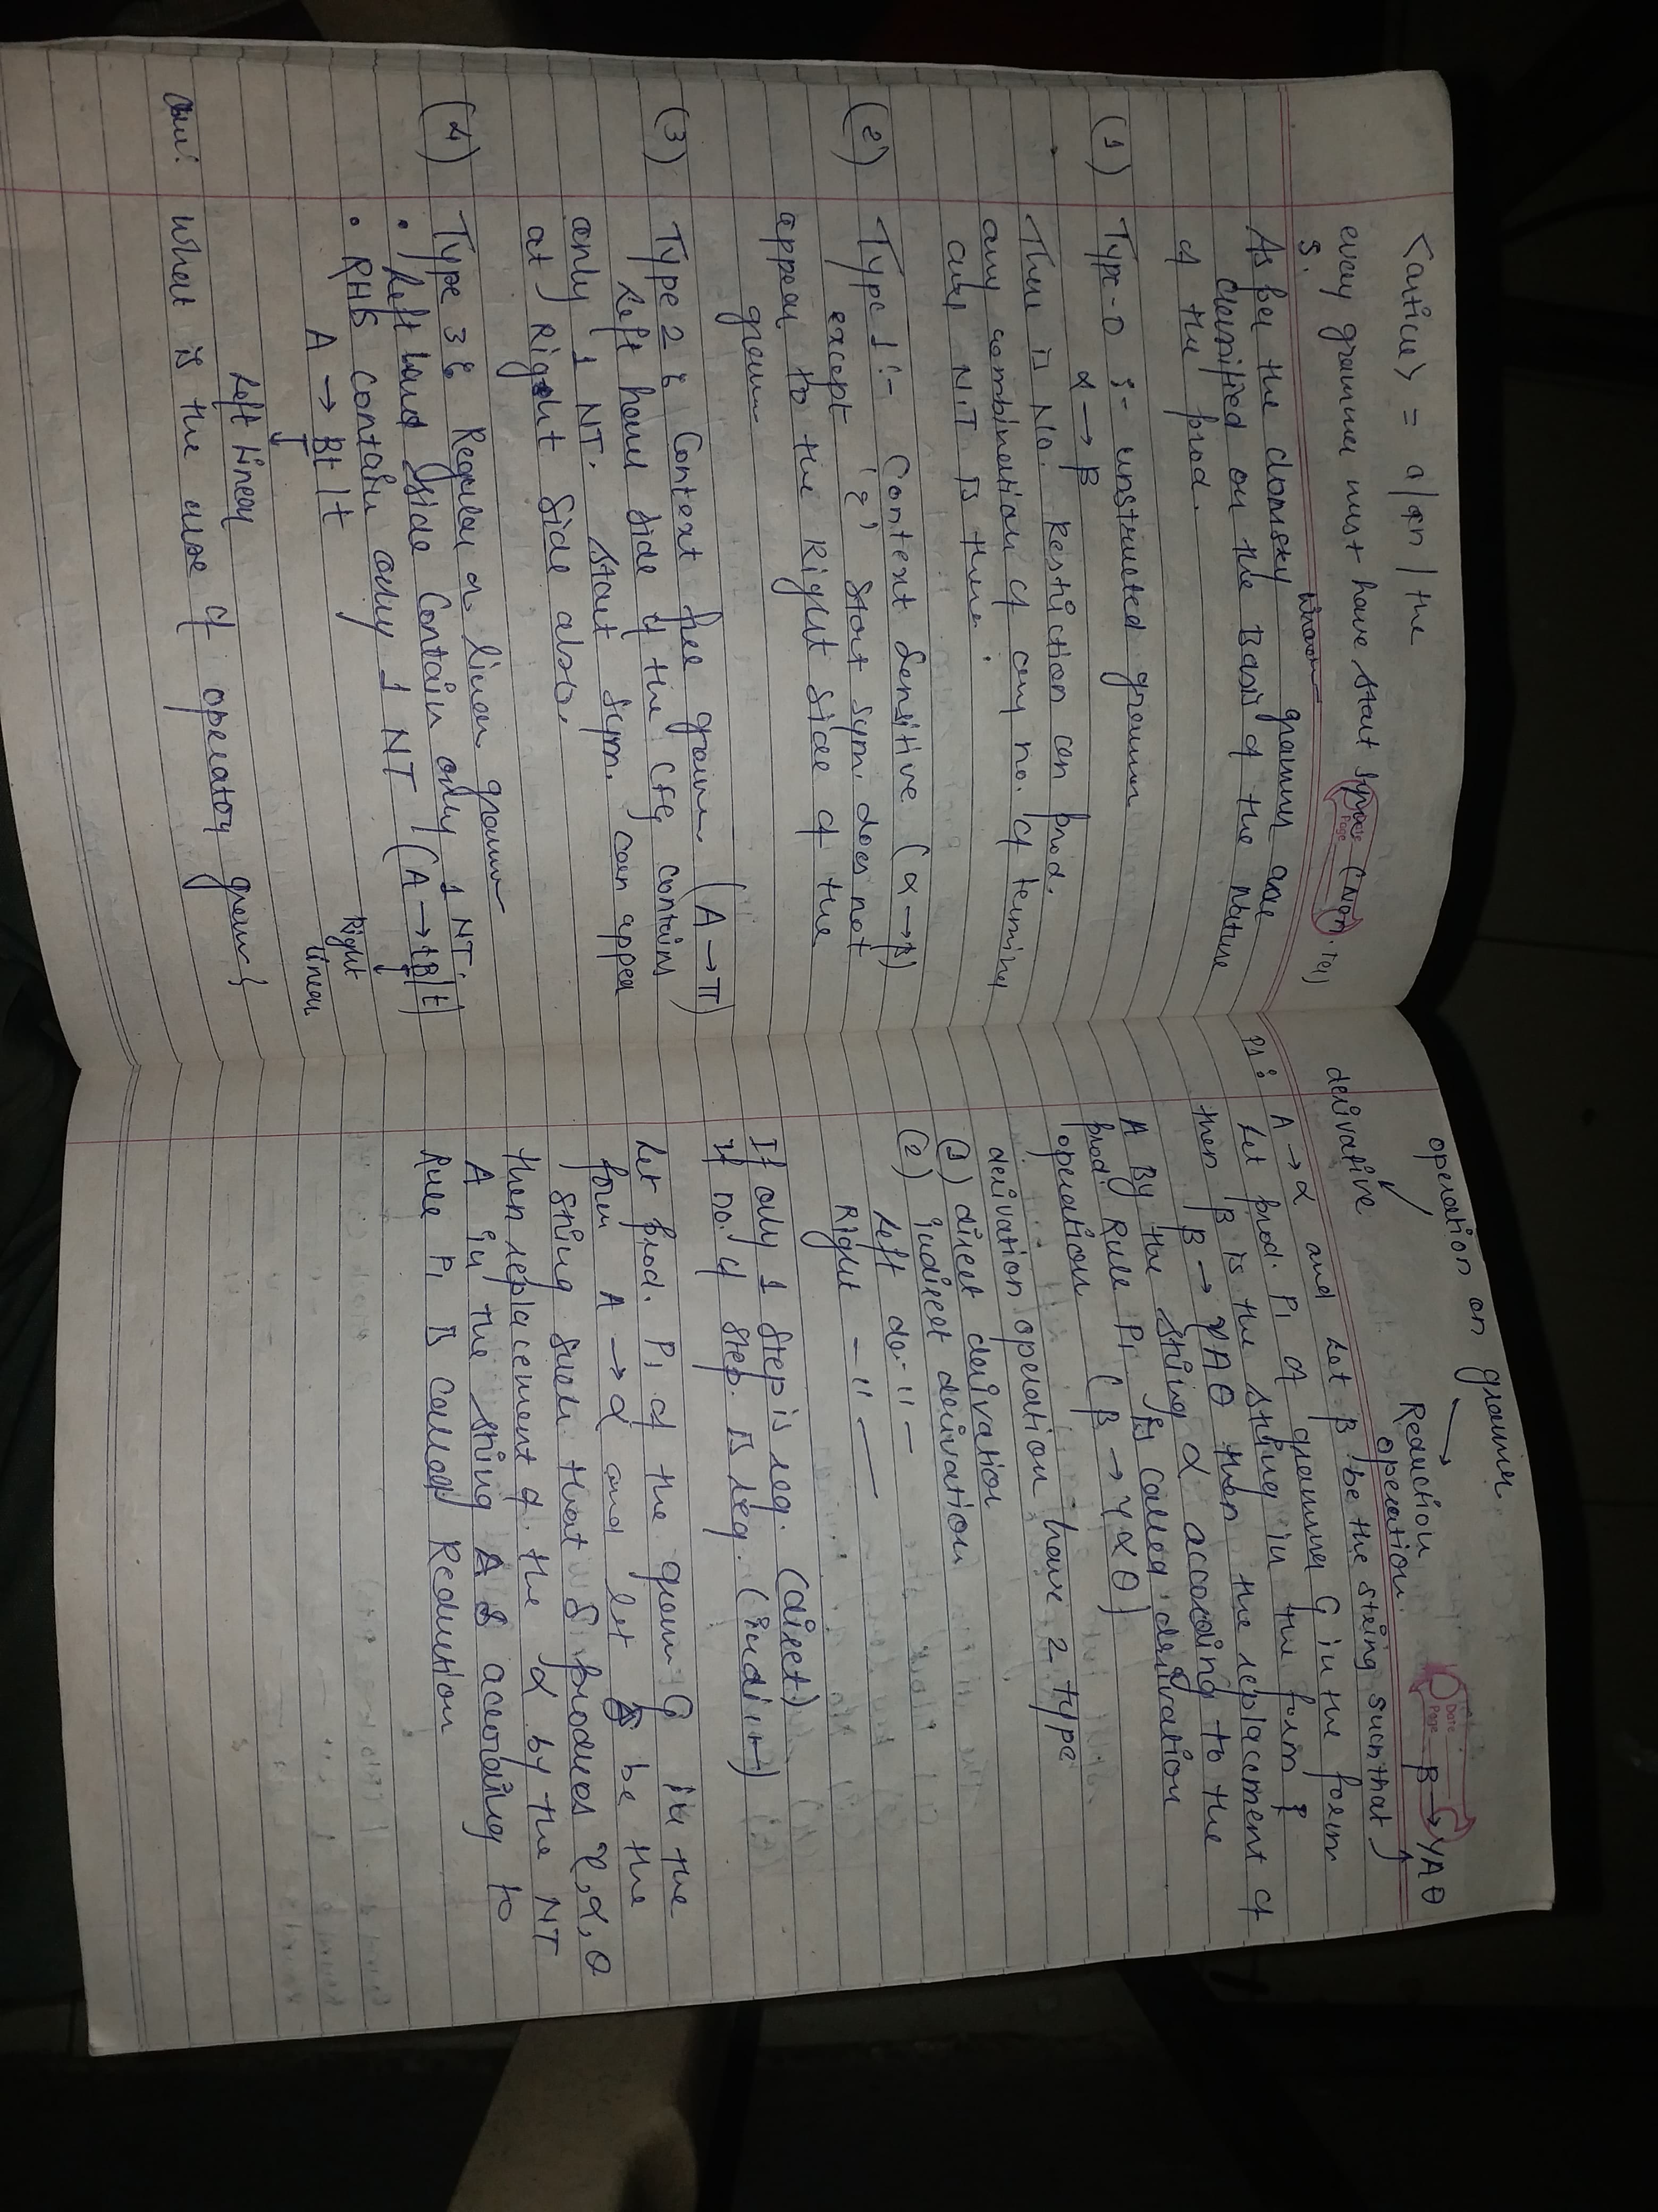 <article> = a/an/the
every grammer must have start sym (Non. Ter)
S.
As per the chomsky grammer are
classified on the Basis of the Nature
of the prod.
(1) Type-0 :- unstructed grammer
α → β
There is No. Restriction on prod.
any combination of any no. of terminal
and N.T is there.
(2) Type 1 :- Context Sensitive (α → β)
except 'ε' Start sym. does not
appear to the Right Side of the
gramm
(3) Type 2 : Context free gramm (A → π)
Left hand side of the CFG contains
only 1 NT. Start Sym. can appea
at Right Side also.
(4) Type 3 : Regular or linear gramm
• Left hand side Contain only 1 NT.
• RHS contain only 1 NT (A → tB/t)
Right
linear
A → Bt/t
Left Linear
What is the use of operator gramm?
Date
Page
operation on grammer
Reduction
operation
derivative
Date
Page
β → γAθ
P1 : A → α and Let β be the string such that
Let prod. P1 of grammer G in the form
then β is the string in the form
β → γAθ then the replacement of
A By the string α according to the
prod. Rule P1 is called derivation
operation (β → γαθ)
derivation operation have 2 type
(1) direct derivation
(2) indirect derivation
Left de- " -
Right - " -
If only 1 Step is req. (diret)
If no. of Step. is req. (indirt)
Let prod. P1 of the gramm G in the
form A → α and let δ be the
string such that δ produces γ, α, θ
then replacement of the α by the NT
A in the string δ according to
Rule P1 is called Reduction